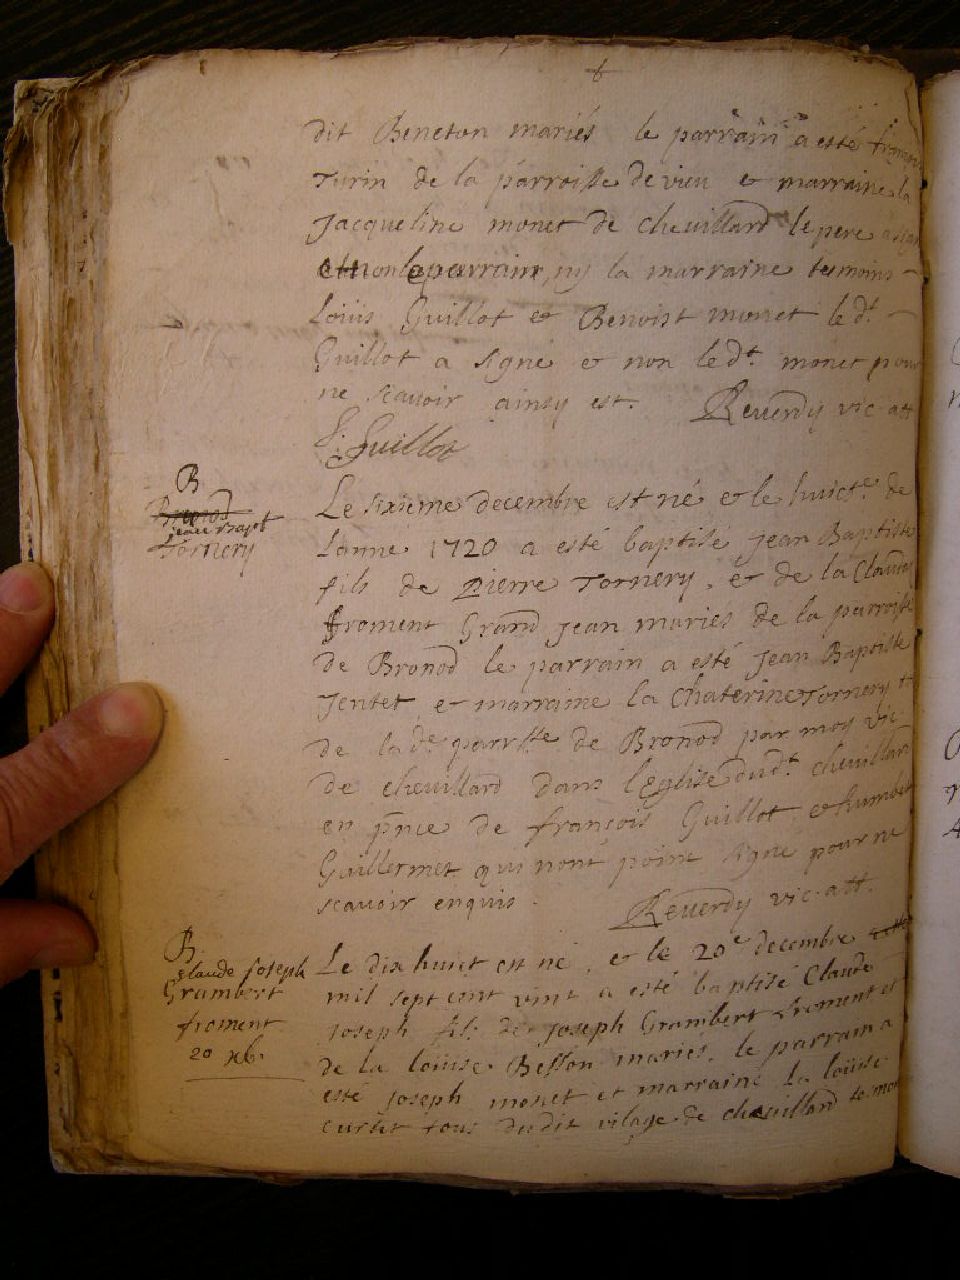 dit Beneton mariés le parrain a esté françois
Turin de la parroisse de vieu et marraine la
Jacqueline monet de chevillard le pere a signé
et non le parrain ny la marraine tesmoins
Loüis Guillot et Benoist monet led.t
Guillot a signé et non led.t monet pour
ne scavoir ainsy est. Reverdy vic. att
L. Guillot
B
Jean Bapt
Tornery
Le sixieme decembre est né et le huict.e de
Lanné 1720 a esté baptisé Jean Baptiste
fils de Pierre Tornery, et de la Clauda
froment Grand Jean mariés de la parroisse
de Bronod le parrain a esté Jean Baptiste
Jentet et marraine la Chaterine Tornery
de lad.e parr.sse de Bronod par moy vic
de chevillard dans l'Eglise dud.t chevillard
en pñce de françois Guillot et humbert
Guillermet qui nont point signe pour ne
scavoir enquis. Reverdy vic. att.
B.
Claude Joseph
Grambert
froment
20 xb.
Le dix huict est né, et le 20e decembre
mil sept cent vint a esté baptisé Claude
Joseph fils de Joseph Grambert froment et
de la loüise Besson mariés, le parrain a
esté Joseph monet et marraine la loüise
curtit tous dudit vilage de chevillard tesmoins